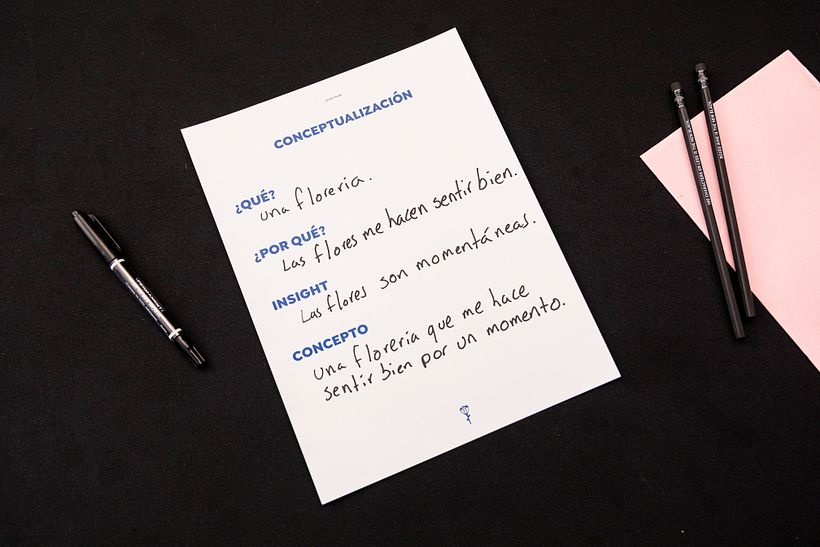 CONCEPTUALIZACIÓN
¿QUÉ?
una florería.
¿POR QUÉ?
Las flores me hacen sentir bien.
INSIGHT
Las flores son momentáneas.
CONCEPTO
una florería que me hace
sentir bien por un momento.